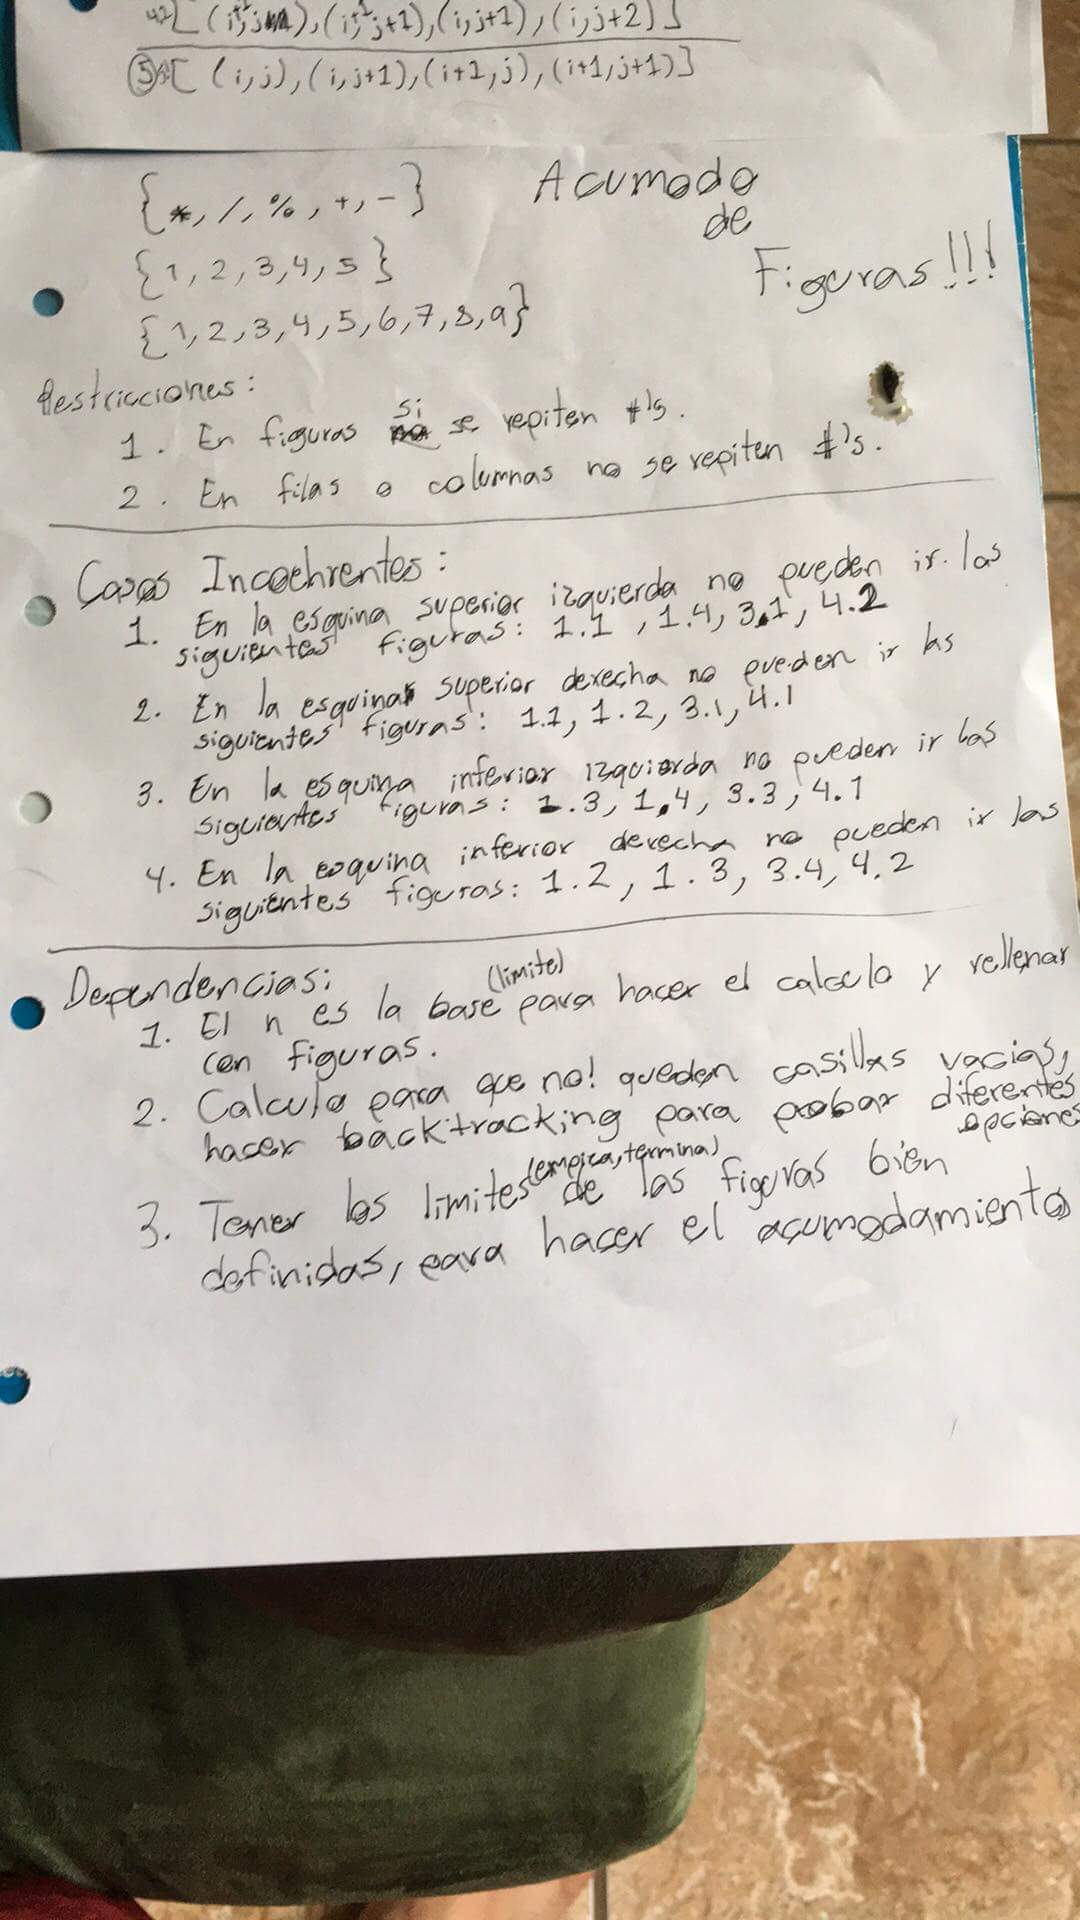 4.2[ (i+1,j), (i+1,j+1), (i,j+1), (i,j+2)]
⑤ [ (i,j), (i,j+1), (i+1,j), (i+1,j+1)]
{*, /, %, +, -}
Acumodo
de
Figuras!!!
{1, 2, 3, 4, 5}
{1, 2, 3, 4, 5, 6, 7, 8, 9}
Restricciones:
1. En figuras si se repiten #'s.
2. En filas o columnas no se repiten #'s.
Casos Incoehrentes:
1. En la esquina superior izquierda no pueden ir las
siguientes figuras: 1.1, 1.4, 3.1, 4.2
2. En la esquina superior derecha no pueden ir las
siguientes figuras: 1.1, 1.2, 3.1, 4.1
3. En la esquina inferior izquierda no pueden ir las
siguientes figuras: 1.3, 1.4, 3.3, 4.1
4. En la esquina inferior derecha no pueden ir las
siguientes figuras: 1.2, 1.3, 3.4, 4.2
Dependencias:
1. El n es la base (limite) para hacer el calculo y rellenar
con figuras.
2. Calculo para que no! queden casillas vacias,
hacer backtracking para probar diferentes
opciones
3. Tener los limites (empieza, termina) de las figuras bien
definidas, para hacer el acumodamiento